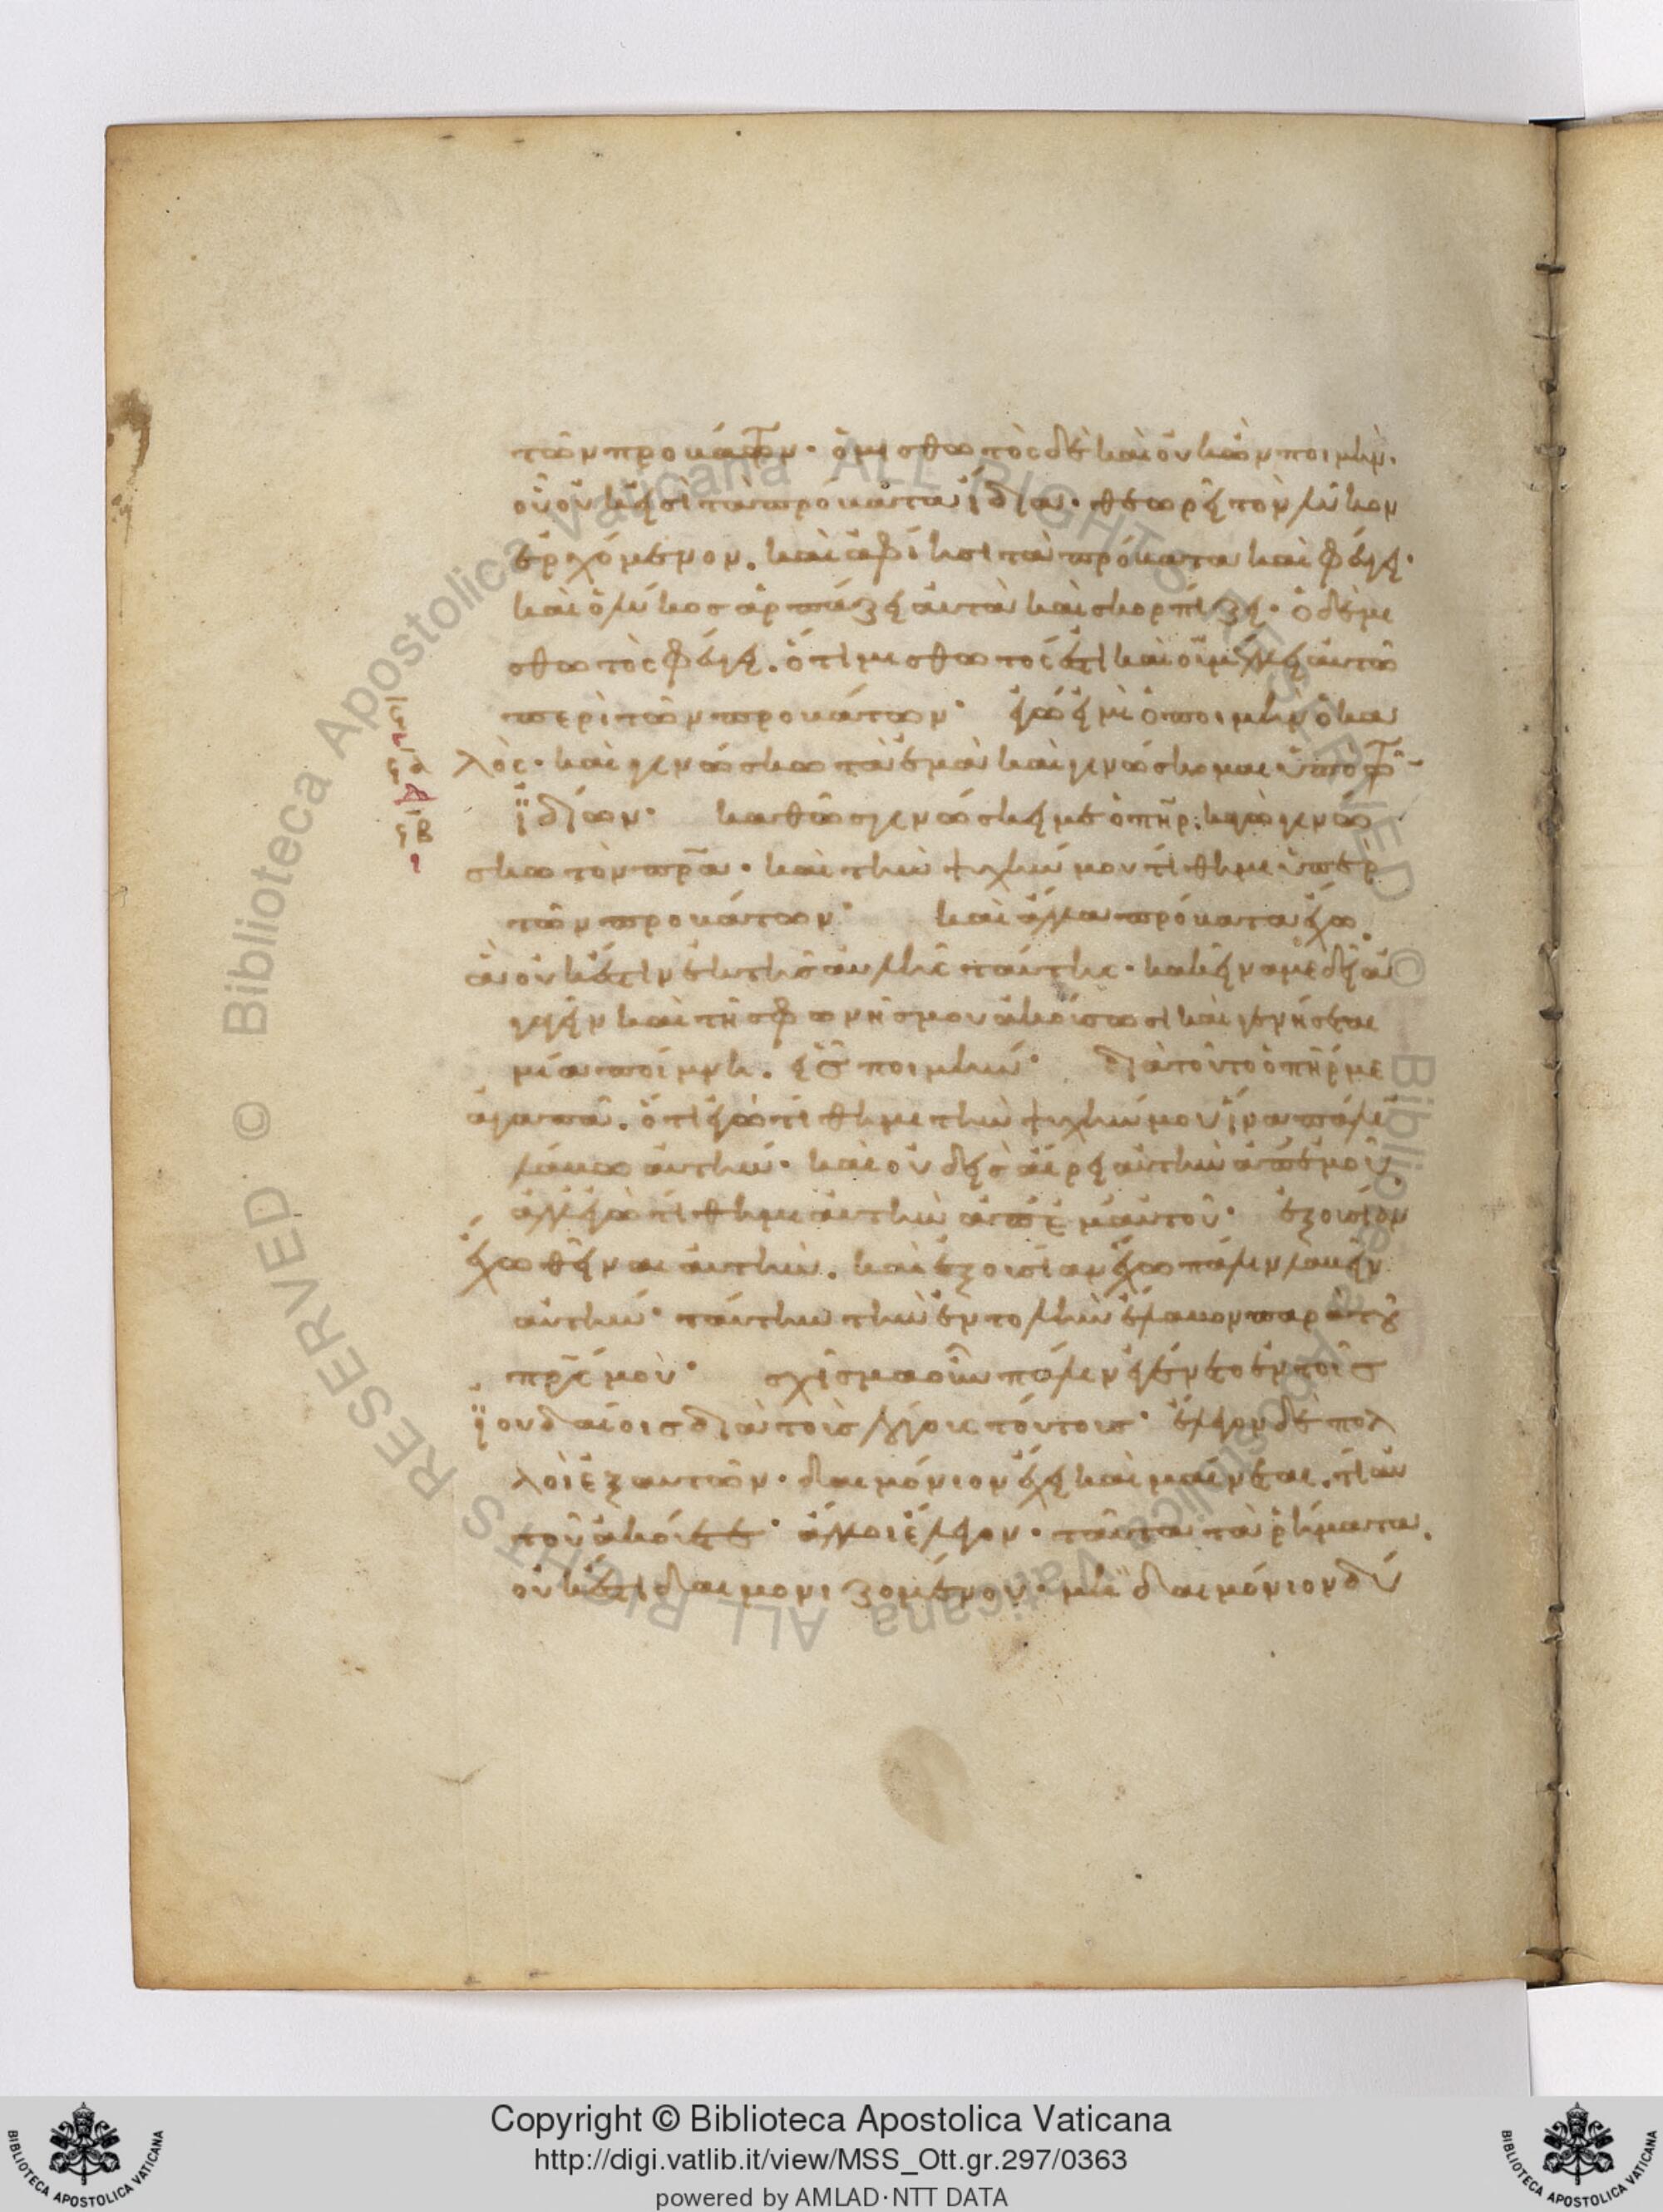 τῶν προβάτων· ὁ μισθωτὸς δὲ καὶ οὐκ ὢν ποιμὴν.
οὗ οὐκ εἰσὶ τὰ πρόβατα ἴδια· θεωρεῖ τὸν λύκον
ἐρχόμενον. καὶ ἀφίησι τὰ πρόβατα καὶ φεύγει·
καὶ ὁ λύκος ἁρπάζει αὐτὰ καὶ σκορπίζει· ὁ δὲ μι
σθωτὸς φεύγει. ὅτι μισθωτός ἐστι καὶ οὐ μέλει αὐτῶ
περὶ τῶν προβάτων· ἐγώ εἰμι ὁ ποιμὴν ὁ κα
λὸς· καὶ γινώσκω τὰ ἐμὰ καὶ γινώσκομαι ὑπὸ τῶν
ϊδίων· καθὼς γινώσκει με ὁ πηρ. καγὼ γινώ
σκω τὸν πρα· καὶ τὴν ψυχήν μου τίθημι ὑπὲρ
τῶν προβάτων· καὶ ἄλλα πρόβατα ἔχω.
ἃ οὐκ ἔστιν ἐκ τῆς αὐλῆς ταύτης· κακεῖνά με δεῖ ἀ
γαγεῖν καὶ τῆς φωνῆς μου ἀκούσωσι καὶ γενήσεται
μία ποίμνη. εἷς ποιμήν· διὰ τοῦτο ὁ πηρ με
ἀγαπᾶ. ὅτι ἐγὼ τίθημι τὴν ψυχήν μου ἵνα πάλιν
λάβω αὐτήν· καὶ οὐδεὶς αἴρει αὐτὴν ἀπ' ἐμοῦ
ἀλλ' ἐγὼ τίθημι αὐτὴν ἀπ' ἐμαυτοῦ· ἐξουσίαν
ἔχω θεῖναι αὐτὴν. καὶ ἐξουσίαν ἔχω πάλιν λαβεῖν
αὐτήν· ταύτην τὴν ἐντολὴν ἔλαβον παρὰ τοῦ
πρς μου· σχίσμα οὖν πάλιν ἐγένετο ἐν τοῖς
ϊουδαίοις διὰ τοὺς λόγους τούτους· ἔλεγον δὲ πολ
λοὶ ἐξ αυτῶν· δαιμόνιον ἔχει καὶ μαίνεται. τί αὐ
τοῦ ἀκούετε· ἄλλοι ἔλεγον· ταῦτα τὰ ῥήματα.
οὐκ ἔστι δαιμονιζομένου· μὴ δαιμόνιον δύ
Copyright © Biblioteca Apostolica Vaticana
http://digi.vatlib.it/view/MSS_Ott.gr.297/0363
powered by AMLAD·NTT DATA
BIBLIOTECA APOSTOLICA VATICANA
BIBLIOTECA APOSTOLICA VATICANA
© Biblioteca Apostolica Vaticana ALL RIGHTS RESERVED
© Biblioteca Apostolica Vaticana ALL RIGHTS RESERVED